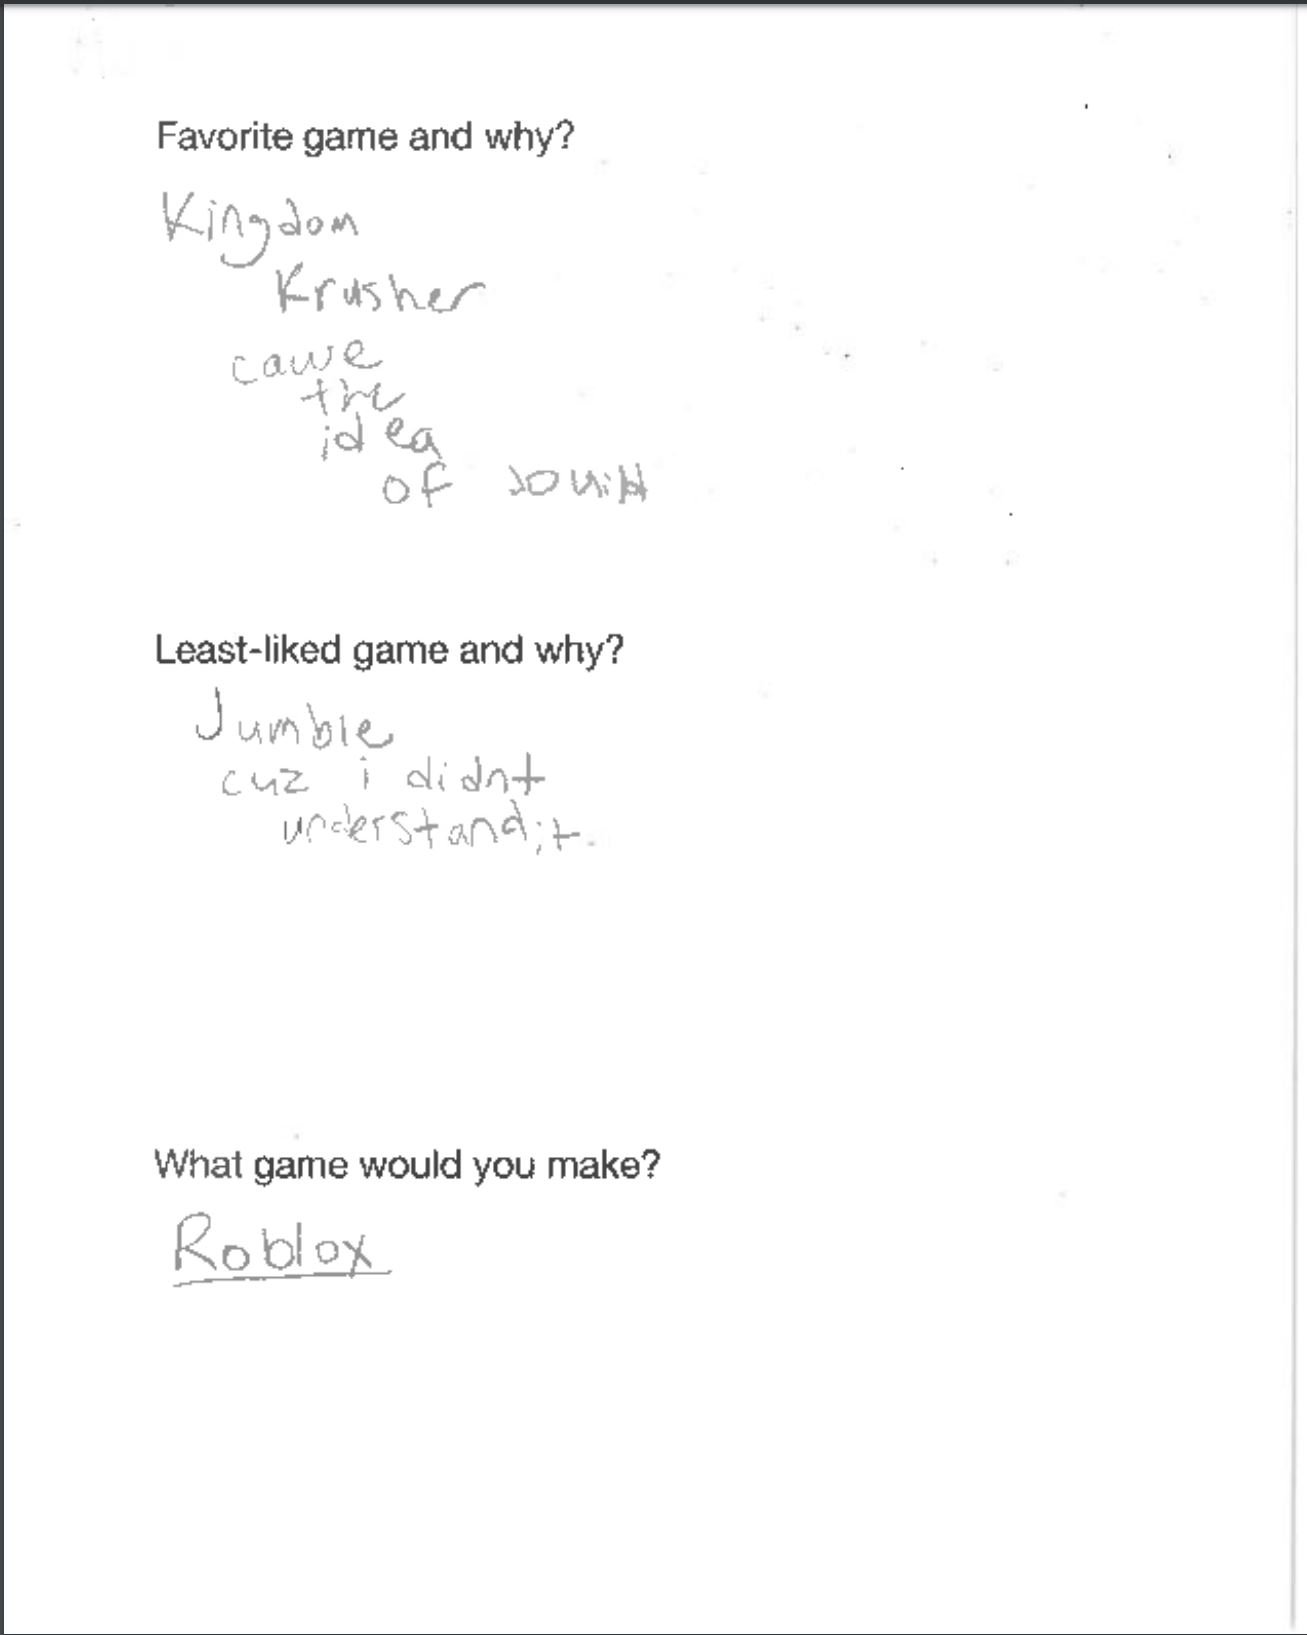 Favorite game and why?
Kingdom
Krusher
cause
the
idea
of
Least-liked game and why?
Jumble
cuz i didnt
understand it.
What game would you make?
Roblox